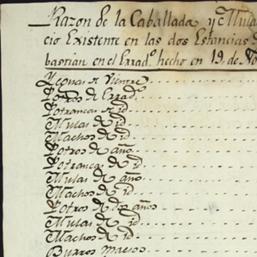 Razon de la Caballada y Mula
cio Existente en las dos Estancias
bastian en el Errad.º hecho en 19 de
Yeguas de Vientre
Potros de Errad.º
Potrancas de Yd.
Mulas de Yd.
Machos de Yd.
Potros de año
Potrancas de Yd.
Mulas de año
Machos de Yd.
Potros de 2 años
Mulas de Yd.
Machos de Yd.
Burros Maesos